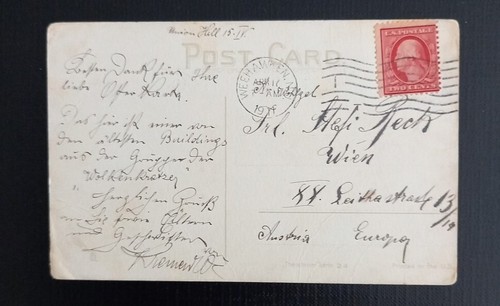 Union Hill 15-IV
POST CARD
WEEHAWKEN, N.J.
APR 17
U.S. POSTAGE
TWO CENTS
Besten Dank für Ihre
liebe Osterkarte.
Das hier ist einer von
den ältesten Buildings
aus der Gruppe der
"Wolkenkratzer"
Herzlichen Gruß
an Sie Ihre Eltern
und Geschwister
Frl. Hesi Beck
Wien
XX. Leithastrasse 13/19
Austria Europa